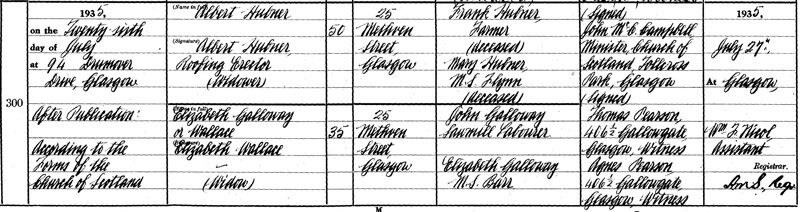 1935,
on the Twenty sixth
day of July
at 94 Drumover
Drive, Glasgow
300
After Publication:
According to the
Forms of the
Church of Scotland
(Name in full)
Albert Hubner
(Signature)
Albert Hubner,
Roofing Erector
(Widower)
Elizabeth Galloway
or Wallace
Elizabeth Wallace
—
(Widow)
50
35
25
Methven
Street
Glasgow
25
Methven
Street
Glasgow
Frank Hubner
Farmer
(deceased)
Mary Hubner
M.S. Flynn
(deceased)
John Galloway
Sawmill Labourer
Elizabeth Galloway
M.S. Barr
(Signed)
John McC Campbell
Minister, Church of
Scotland, Tollcross
Park, Glasgow
(Signed)
Thomas Pearson,
406½ Gallowgate
Glasgow, Witness
Agnes Pearson
406½ Gallowgate,
Glasgow, Witness
1935,
July 27th,
At Glasgow,
Wm F. Nicol
Assistant
Registrar.
M